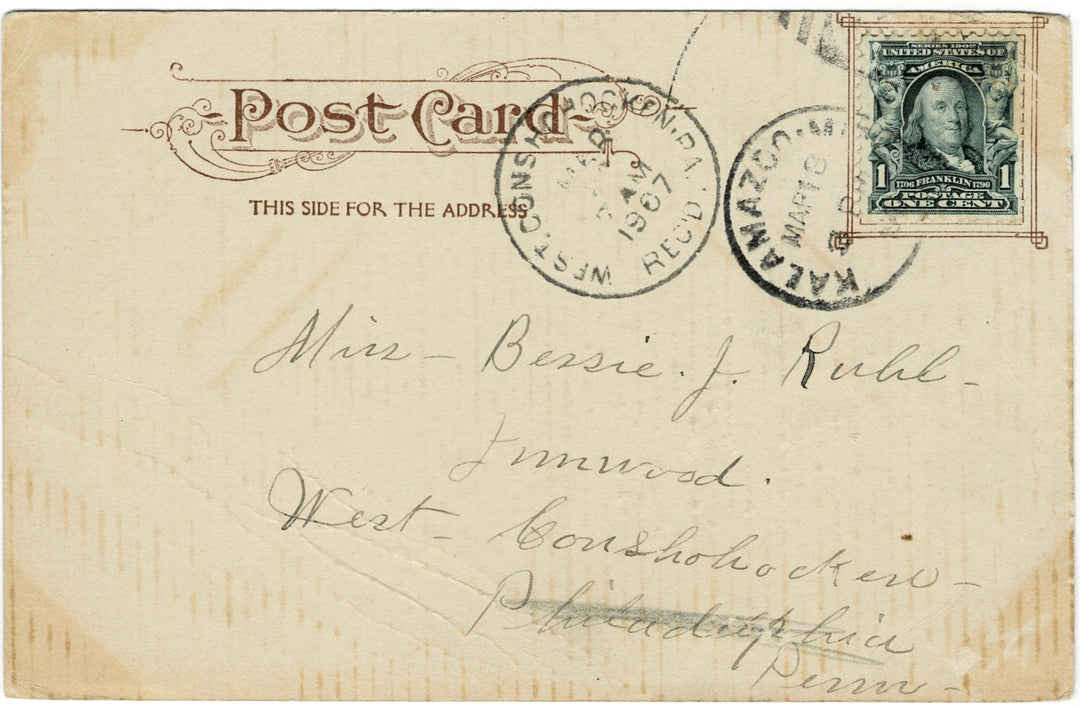 Post Card
THIS SIDE FOR THE ADDRESS
WEST. CONSHOHOCKEN. PA.
AM
1907
REC'D.
KALAMAZOO. MICH
MAR 18
SERIES 1902
UNITED STATES OF
AMERICA
1 1706 FRANKLIN 1790 1
POSTAGE
ONE CENT
Miss - Bessie. J. Ruhl -
West - Conshohocken -
Philadelphia
Penn -